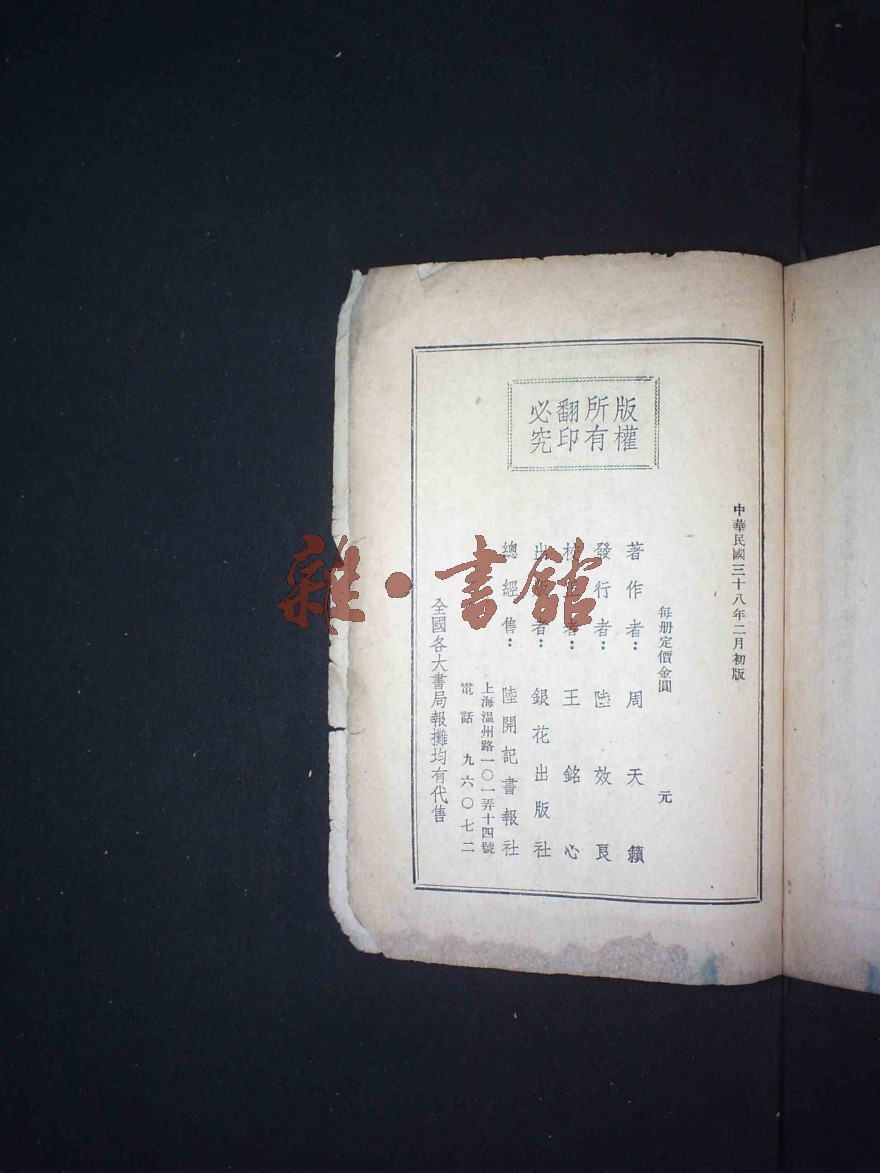 版權
所有
翻印
必究
中華民國三十八年二月初版
每册定價金圓 元
著作者：周天籟
發行者：陸效良
校對者：王銘心
出版者：銀花出版社
總經售：陸開記書報社
上海溫州路一〇一弄十四號
電話 九六〇七二
全國各大書局報攤均有代售
雜·書館